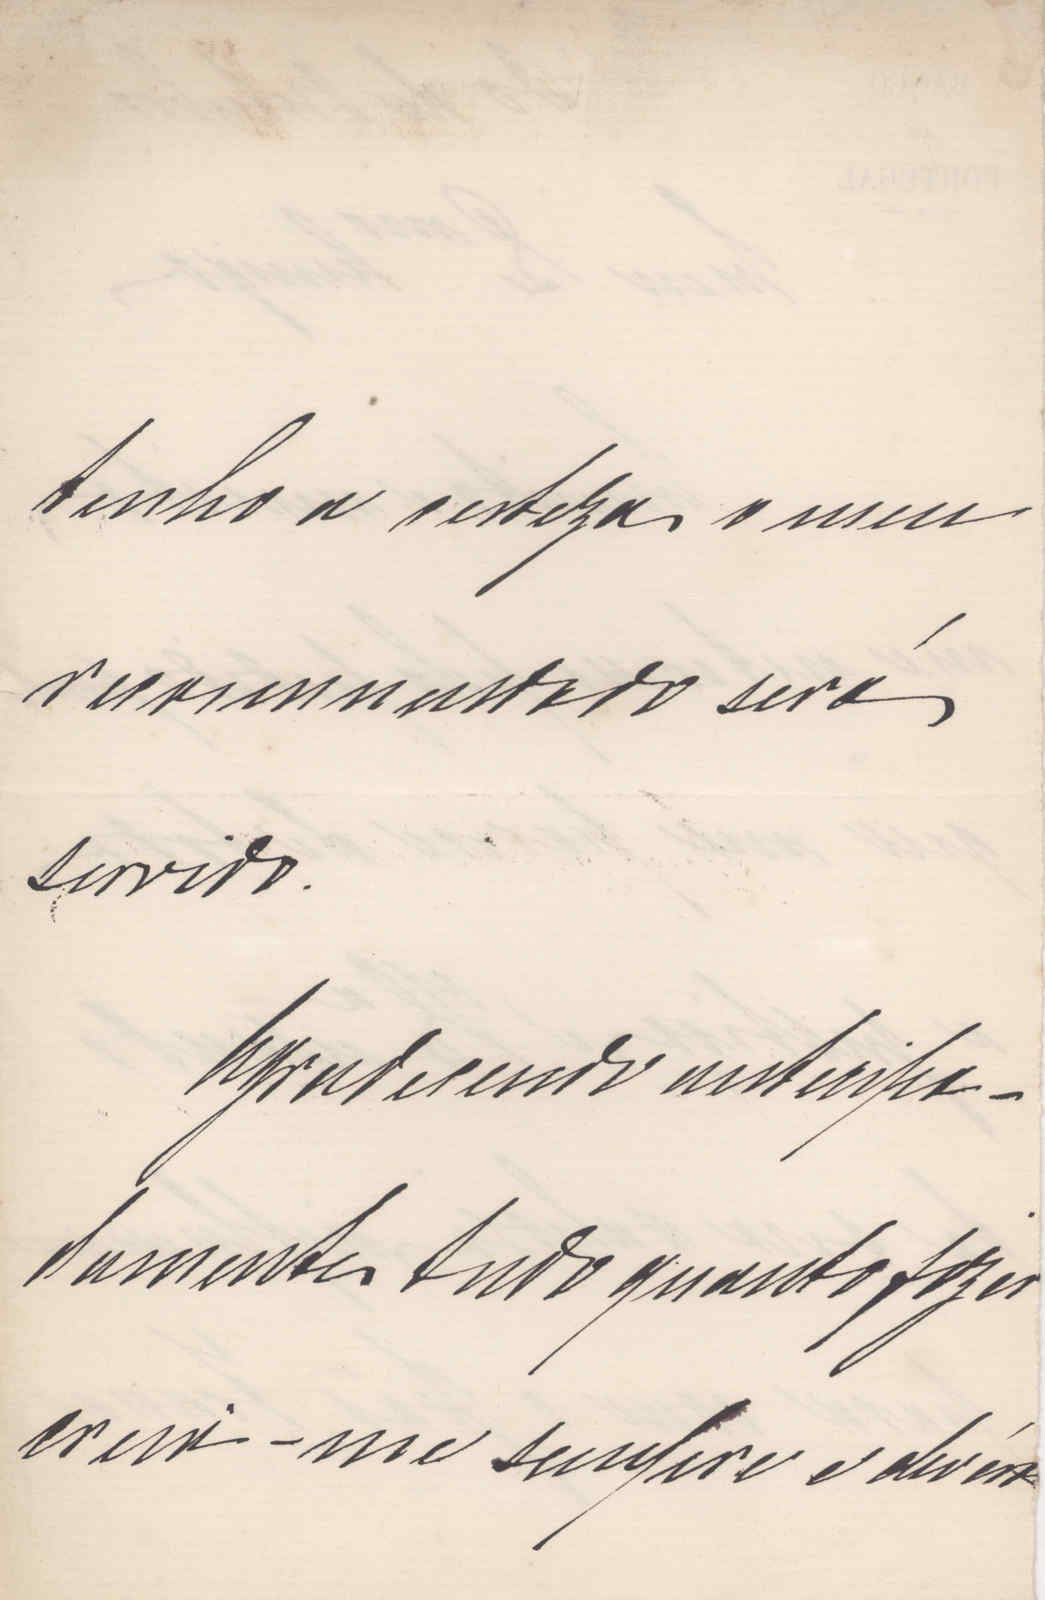 tenho a certeza, o meu
recommendado será
servido.
Agradecendo antecipa-
damente, tudo quanto fizer
creia-me sempre e devéras